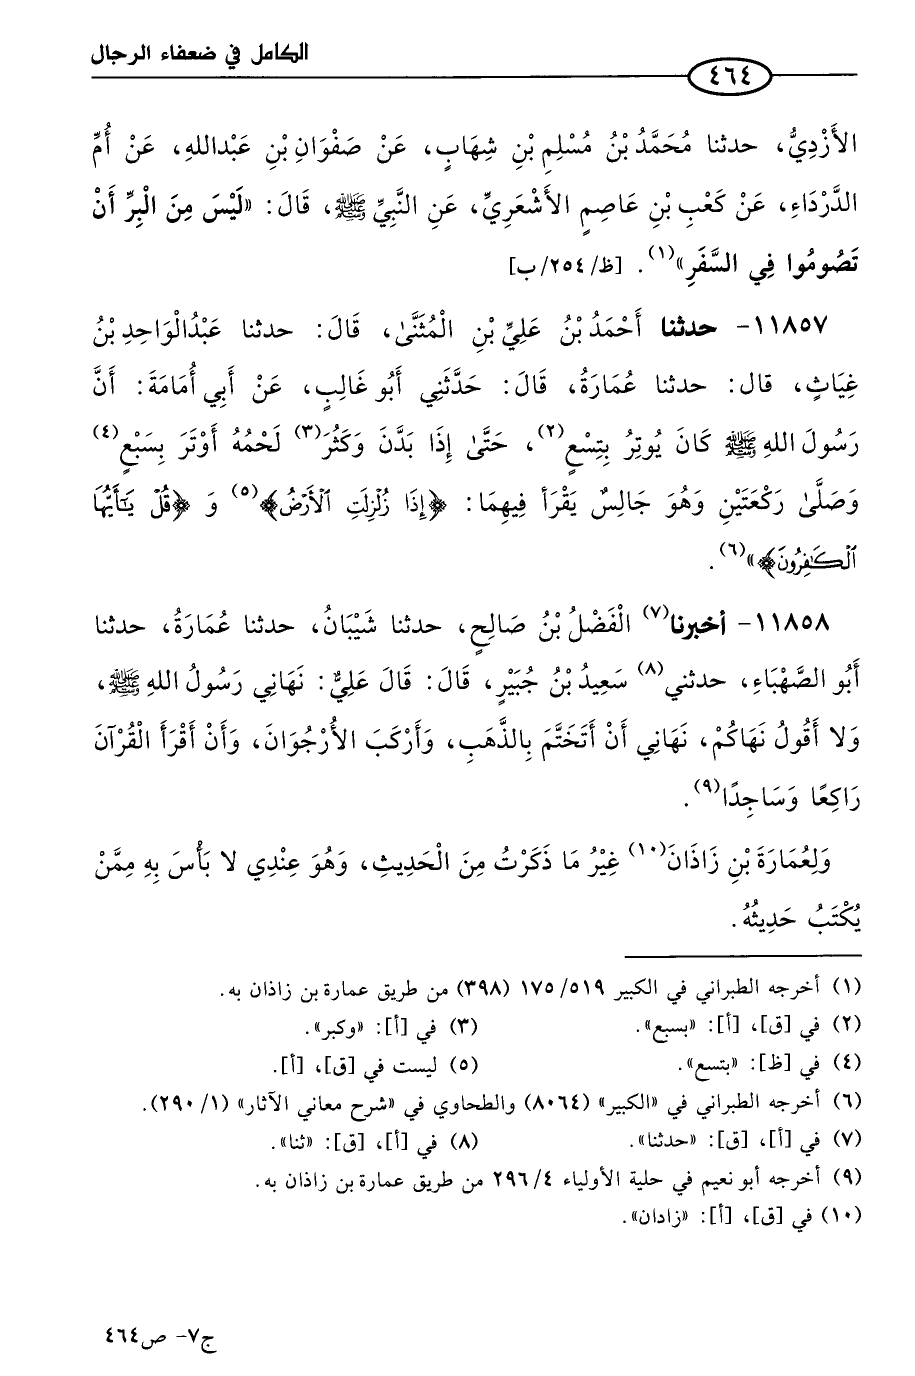 الكامل في ضعفاء الرجال
٤٦٤
الأَزْدِيُّ، حدثنا مُحَمَّدُ بْنُ مُسْلِمِ بْنِ شِهَابٍ، عَنْ صَفْوَانِ بْنِ عَبْداللهِ، عَنْ أُمِّ
الدَّرْدَاءِ، عَنْ كَعْبِ بْنِ عَاصِمٍ الأَشْعَرِيِّ، عَنِ النَّبِيِّ ﷺ، قَالَ: «لَيْسَ مِنَ الْبِرِّ أَنْ
تَصُومُوا فِي السَّفَرِ»(١). [ظ/٢٥٤/ب]
١١٨٥٧- حدثنا أَحْمَدُ بْنُ عَلِيِّ بْنِ الْمُثَنَّىٰ، قَالَ: حدثنا عَبْدُالْوَاحِدِ بْنُ
غِيَاثٍ، قال: حدثنا عُمَارَةُ، قَالَ: حَدَّثَنِي أَبُو غَالِبٍ، عَنْ أَبِي أُمَامَةَ: أَنَّ
رَسُولَ اللهِ ﷺ كَانَ يُوتِرُ بِتِسْعٍ(٢)، حَتَّىٰ إِذَا بَدَّنَ وَكَثُرَ(٣) لَحْمُهُ أَوْتَرَ بِسَبْعٍ(٤)
وَصَلَّىٰ رَكْعَتَيْنِ وَهُوَ جَالِسٌ يَقْرَأُ فِيهِمَا: ﴿إِذَا زُلْزِلَتِ ٱلْأَرْضُ﴾(٥) وَ ﴿قُلْ يَـٰٓأَيُّهَا
ٱلْكَـٰفِرُونَ﴾»(٦).
١١٨٥٨- أخبرنا(٧) الْفَضْلُ بْنُ صَالِحٍ، حدثنا شَيْبَانُ، حدثنا عُمَارَةُ، حدثنا
أَبُو الصَّهْبَاءِ، حدثني(٨) سَعِيدُ بْنُ جُبَيْرٍ، قَالَ: قَالَ عَلِيٌّ: نَهَانِي رَسُولُ اللهِ ﷺ،
وَلا أَقُولُ نَهَاكُمْ، نَهَانِي أَنْ أَتَخَتَّمَ بِالذَّهَبِ، وَأَرْكَبَ الأُرْجُوَانَ، وَأَنْ أَقْرَأَ الْقُرْآنَ
رَاكِعًا وَسَاجِدًا(٩).
وَلِعُمَارَةَ بْنِ زَاذَانَ(١٠) غَيْرُ مَا ذَكَرْتُ مِنَ الْحَدِيثِ، وَهُوَ عِنْدِي لا بَأْسَ بِهِ مِمَّنْ
يُكْتَبُ حَدِيثُهُ.
(١) أخرجه الطبراني في الكبير ١٧٥/٥١٩ (٣٩٨) من طريق عمارة بن زاذان به.
(٢) في [ق]، [أ]: «بسبع». (٣) في [أ]: «وكبر».
(٤) في [ظ]: «بتسع». (٥) ليست في [ق]، [أ].
(٦) أخرجه الطبراني في «الكبير» (٨٠٦٤) والطحاوي في «شرح معاني الآثار» (١/ ٢٩٠).
(٧) في [أ]، [ق]: «حدثنا». (٨) في [أ]، [ق]: «ثنا».
(٩) أخرجه أبو نعيم في حلية الأولياء ٤/ ٢٩٦ من طريق عمارة بن زاذان به.
(١٠) في [ق]، [أ]: «زادان».
ج٧- ص٤٦٤